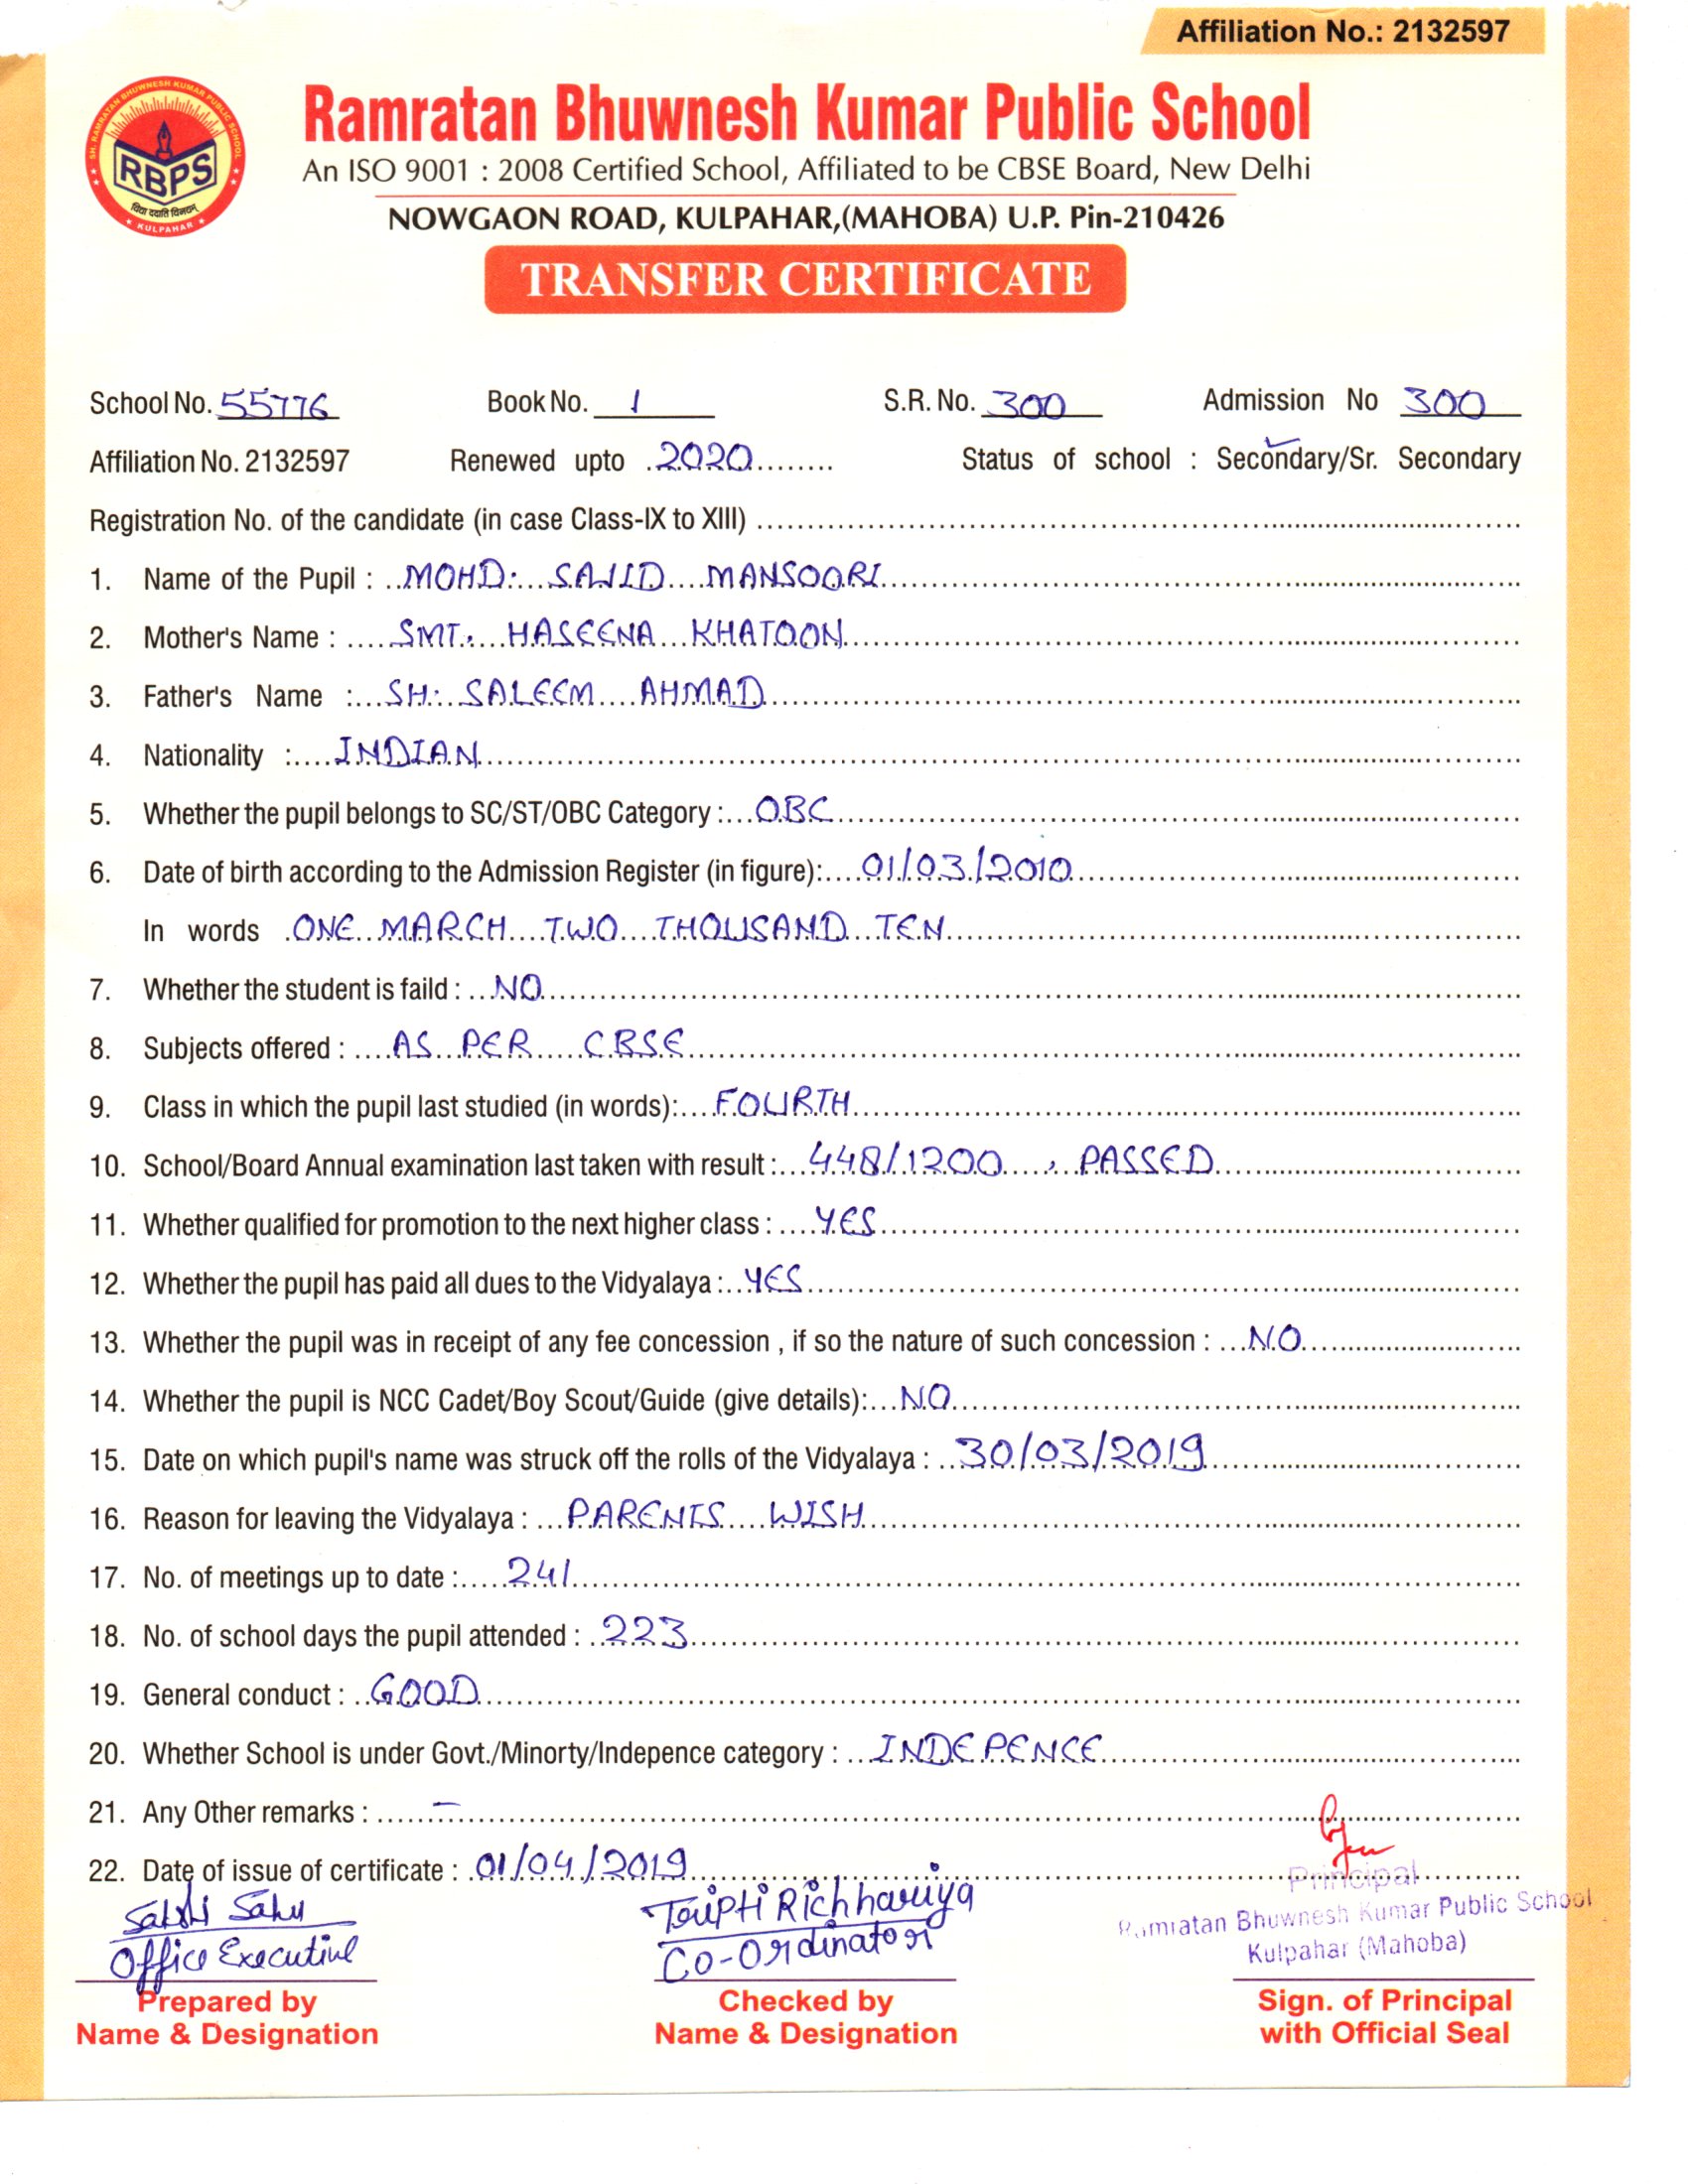 Affiliation No.: 2132597
SH. RAMRATAN BHUWNESH KUMAR PUBLIC SCHOOL
RBPS
विद्या ददाति विनयम्
KULPAHAR
Ramratan Bhuwnesh Kumar Public School
An ISO 9001 : 2008 Certified School, Affiliated to be CBSE Board, New Delhi
NOWGAON ROAD, KULPAHAR,(MAHOBA) U.P. Pin-210426
TRANSFER CERTIFICATE
School No. 55776 Book No. 1 S.R. No. 300 Admission No 300
Affiliation No. 2132597 Renewed upto 2020 Status of school : Secondary/Sr. Secondary
Registration No. of the candidate (in case Class-IX to XIII)
1. Name of the Pupil : MOHD: SAJID MANSOORI
2. Mother's Name : SMT: HASEENA KHATOON
3. Father's Name : SH: SALEEM AHMAD
4. Nationality : INDIAN
5. Whether the pupil belongs to SC/ST/OBC Category : OBC
6. Date of birth according to the Admission Register (in figure): 01/03/2010
In words ONE MARCH TWO THOUSAND TEN
7. Whether the student is faild : NO
8. Subjects offered : AS PER CBSE
9. Class in which the pupil last studied (in words): FOURTH
10. School/Board Annual examination last taken with result : 448/1200, PASSED
11. Whether qualified for promotion to the next higher class : YES
12. Whether the pupil has paid all dues to the Vidyalaya : YES
13. Whether the pupil was in receipt of any fee concession , if so the nature of such concession : NO
14. Whether the pupil is NCC Cadet/Boy Scout/Guide (give details): NO
15. Date on which pupil's name was struck off the rolls of the Vidyalaya : 30/03/2019
16. Reason for leaving the Vidyalaya : PARENTS WISH
17. No. of meetings up to date : 241
18. No. of school days the pupil attended : 223
19. General conduct : GOOD
20. Whether School is under Govt./Minorty/Indepence category : INDEPENCE
21. Any Other remarks : –
22. Date of issue of certificate : 01/04/2019
Sakshi Sahu
Office Executive
Prepared by
Name & Designation
Tripti Richhariya
Co-Ordinator
Checked by
Name & Designation
Principal
Ramratan Bhuwnesh Kumar Public School
Kulpahar (Mahoba)
Sign. of Principal
with Official Seal